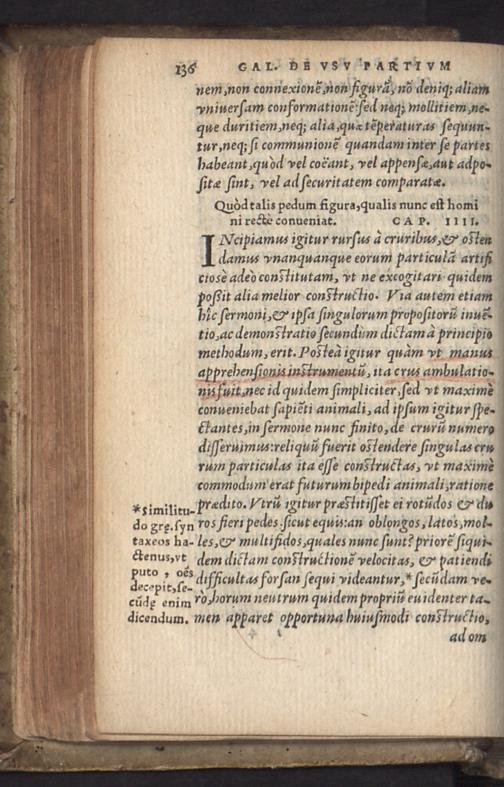 136 GAL. DE VSV PARTIVM
nem, non connexionē, non figurā, nō deniq; aliam
vniuersam conformationē: sed neq; mollitiem, ne-
que duritiem, neq; alia, quæ tēperaturas sequun-
tur, neq; si communionē quandam inter se partes
habeant, quòd vel coëant, vel appensæ, aut adpo-
sitæ sint, vel ad securitatem comparatæ.
Quòd talis pedum figura, qualis nunc est homi
ni rectè conueniat. CAP. IIII.
INcipiamus igitur rursus à cruribus, & osten
damus vnanquanque eorum particulā artifi
ciosè adeò constitutam, vt ne excogitari quidem
possit alia melior constructio. Via autem etiam
hîc sermoni, & ipsa singulorum propositorū inuē-
tio, ac demonstratio secundùm dictam à principio
methodum, erit. Posteà igitur quàm vt manus
apprehensionis instrumentū, ita crus ambulatio-
nis fuit, nec id quidem simpliciter, sed vt maximè
conueniebat sapiēti animali, ad ipsum igitur spe-
ctantes, in sermone nunc finito, de crurū numero
disseruimus: reliquū fuerit ostendere singulas cru
rum particulas ita esse constructas, vt maximè
commodum erat futurum bipedi animali, ratione
prædito. Vtrū igitur præstitisset ei rotūdos & du
ros fieri pedes sicut equis: an oblongos, latos, mol-
les, & multifidos, quales nunc sunt? priorē siqui-
dem dictam constructionē velocitas, & patiendi
difficultas forsan sequi videantur, * secūdam ve-
rò, horum neutrum quidem propriū euidenter ta-
men apparet opportuna huiusmodi constructio,
ad om
*Similitu-
do gre. syn
taxeos ha-
ctenus, vt
puto, oēs
decepit, se-
cūdę enim
dicendum.